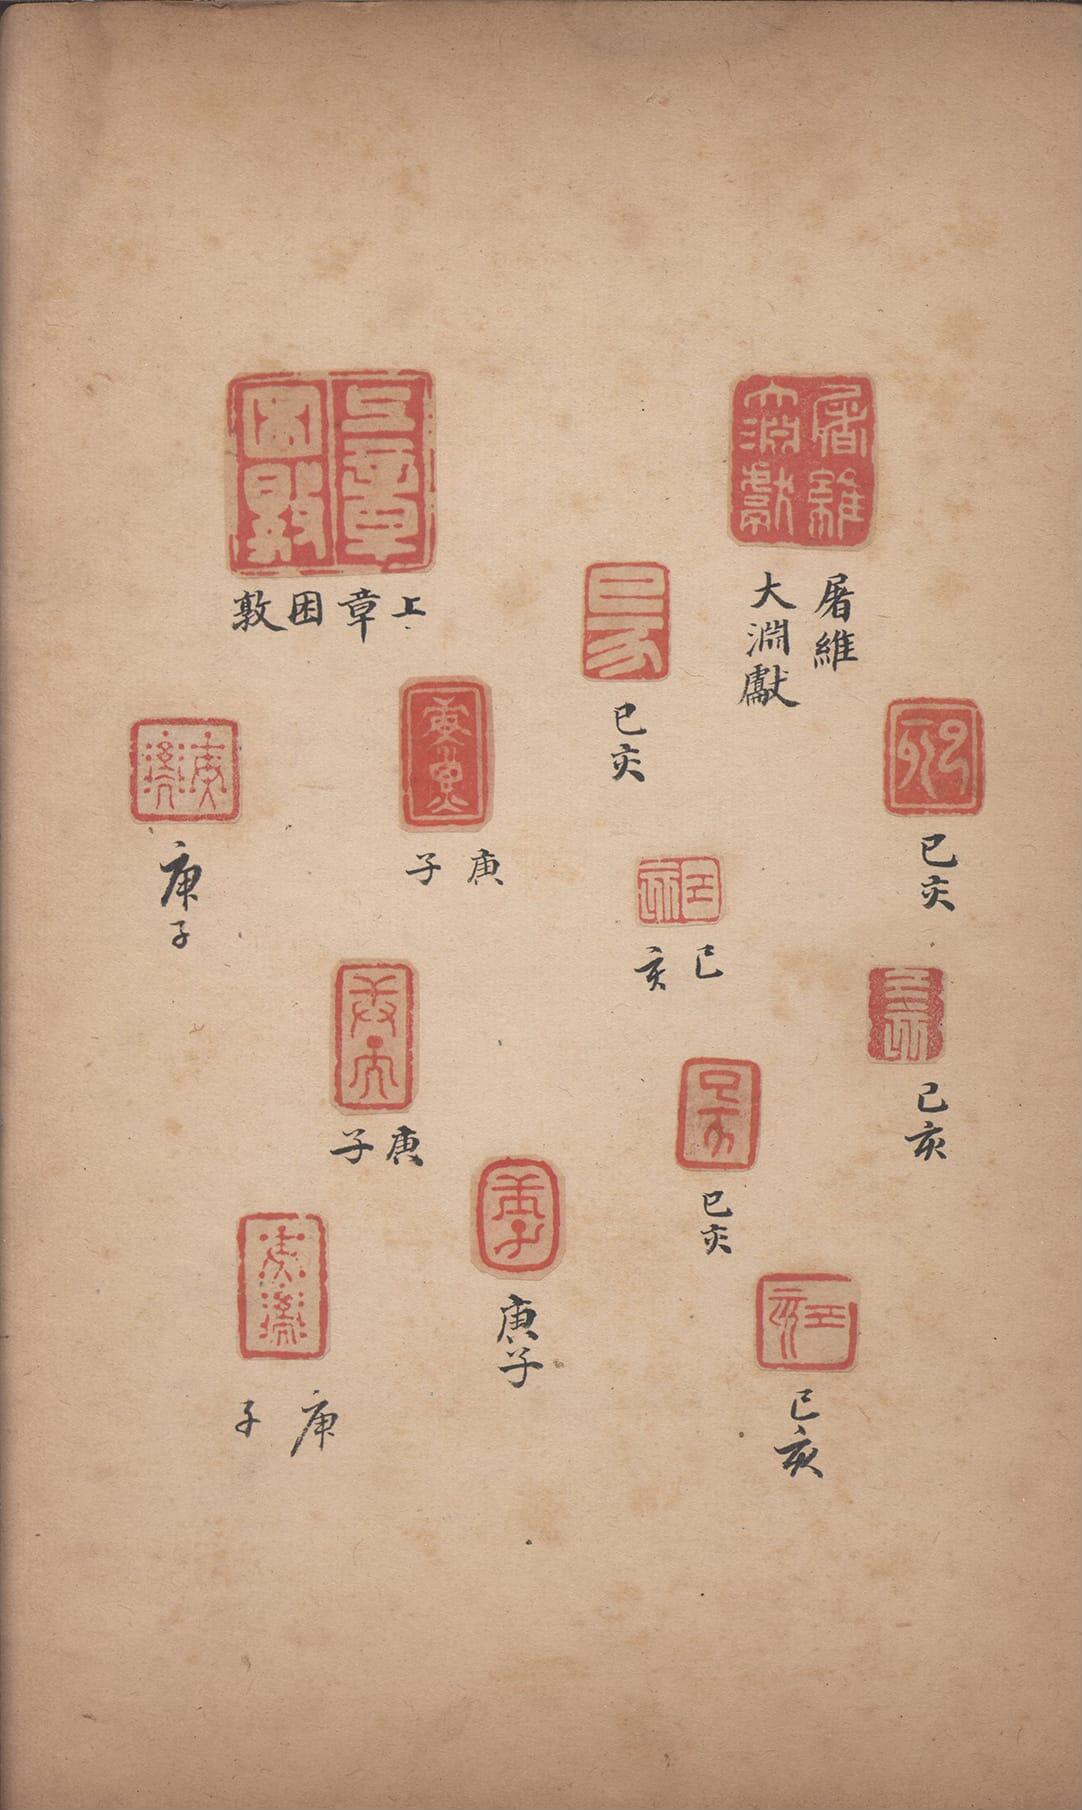 屠維
大淵獻
己亥
己亥
己亥
己亥
己亥
己亥
上章困敦
庚子
庚子
庚子
庚子
庚子